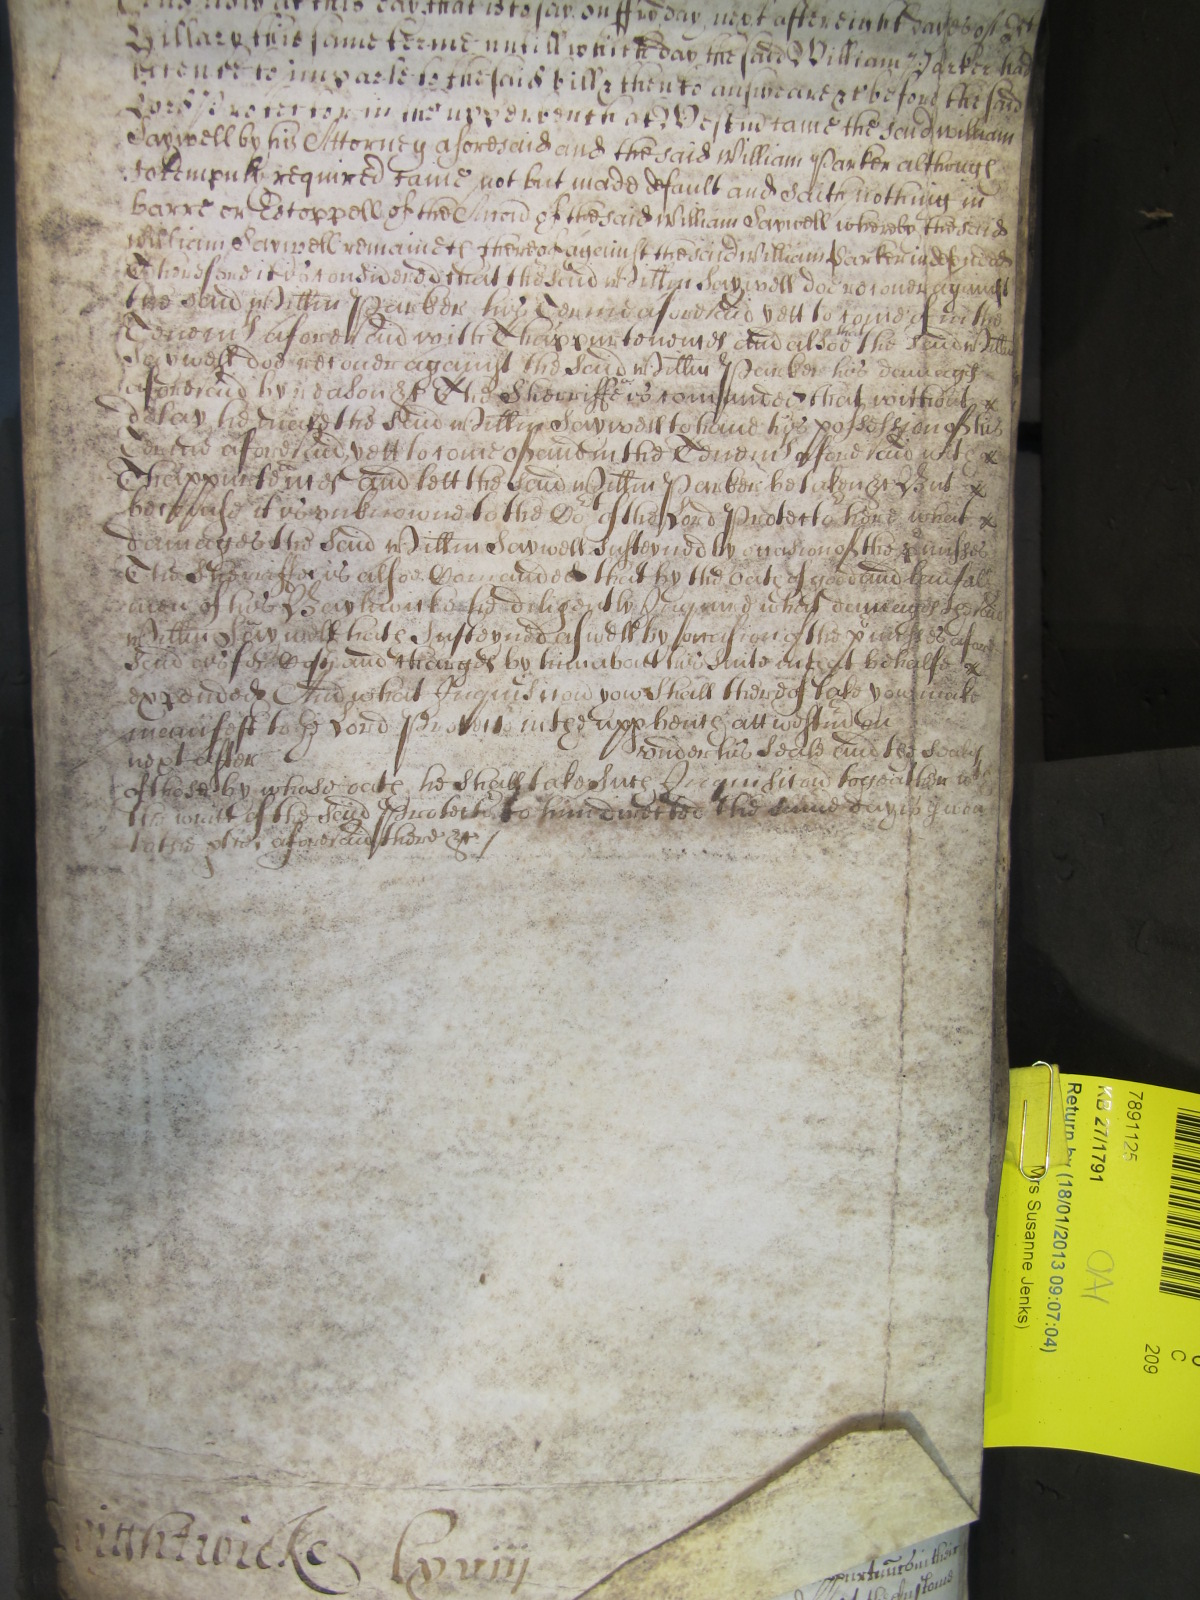 And now at this day that is to say on ffryday next after eight dayes of St
Hillary this same terme untill which day the said William Parker had
licence to imparle to the said bill & then to answeare &c before the said
Lord Protector in the upper bench at Westm came the said William
Saywell by his Attorney aforesaid and the said William Parker although
solempnly required came not but made default and saith nothing in
barre or Estoppell of the Accon of the said William Saywell whereby the said
William Saywell remaineth thereof against the said William Parker undefended
Therefore it is considered that the said Willm Saywell doe recover against
the said Willm Parker his Terme aforesaid yett to come of in the
Tenemts aforesaid with Thappurtenncs and alsoe that the said Willm
Saywell doe recover against the said Willm Parker his damages
aforesaid by reason &c And the Sherriffe is comanded that without x
delay he make the said Willm Saywell to have his possession of his
Terme aforesaid yett to come of and in the Tenemts aforesaid with x
Thappurtenncs and lett the said Willm Parker be taken &c But x
because it is unknowne to the Cort of the Lord Protector here what x
damages the said Willm Saywell susteyned by occasion of the pmisses
The Sherriffe is alsoe Comanded that by the oath of good and lawfull
men of his Baylywicke he diligently Inquire what damages the said
Willm Saywell hath susteyned aswell by occasion of the pmisses afore
said as for Costs and charges by him about his suite in that behalfe x
expended And what Inquisicon you shall thereof take you make
manifest to the Lord Protector in the upp bench att westm on
next after under his seale and the seales
of those by whose oath he shall take such Inquisicon togeather wth
the writt of the said Protector to him directed the same day is given
to the pties aforesaid there &c /
wightwicke lxviij
7891125
KB 27/1791
Return by (18/01/2013 09:07:04)
Mrs Susanne Jenks)
C
209